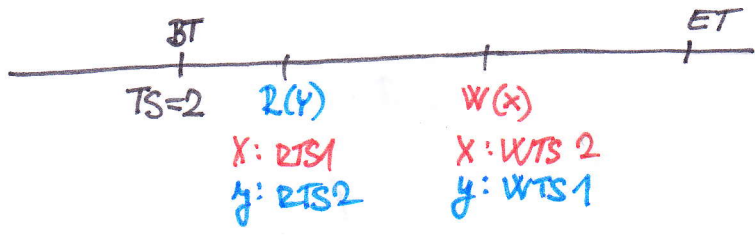 BT ET
TS=2 R(Y) W(X)
X: RTS1 X: WTS 2
y: RTS2 y: WTS 1